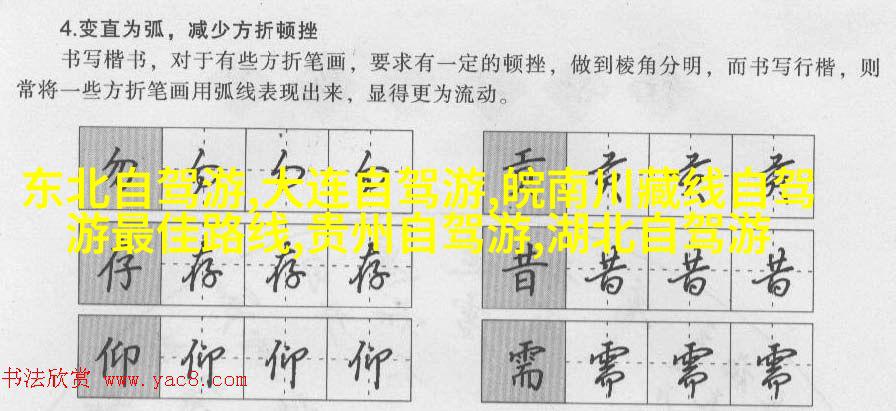 4.变直为弧，减少方折顿挫
书写楷书，对于有些方折笔画，要求有一定的顿挫，做到棱角分明，而书写行楷，则
常将一些方折笔画用弧线表现出来，显得更为流动。
东北自驾游,大连自驾游,皖南川藏线自驾
游最佳路线,贵州自驾游,湖北自驾游
仔 存 存 存
昔 昔 昔 昔
仰 仰 仰 仰
需 需 需 需
书法欣赏 www.yac8.com